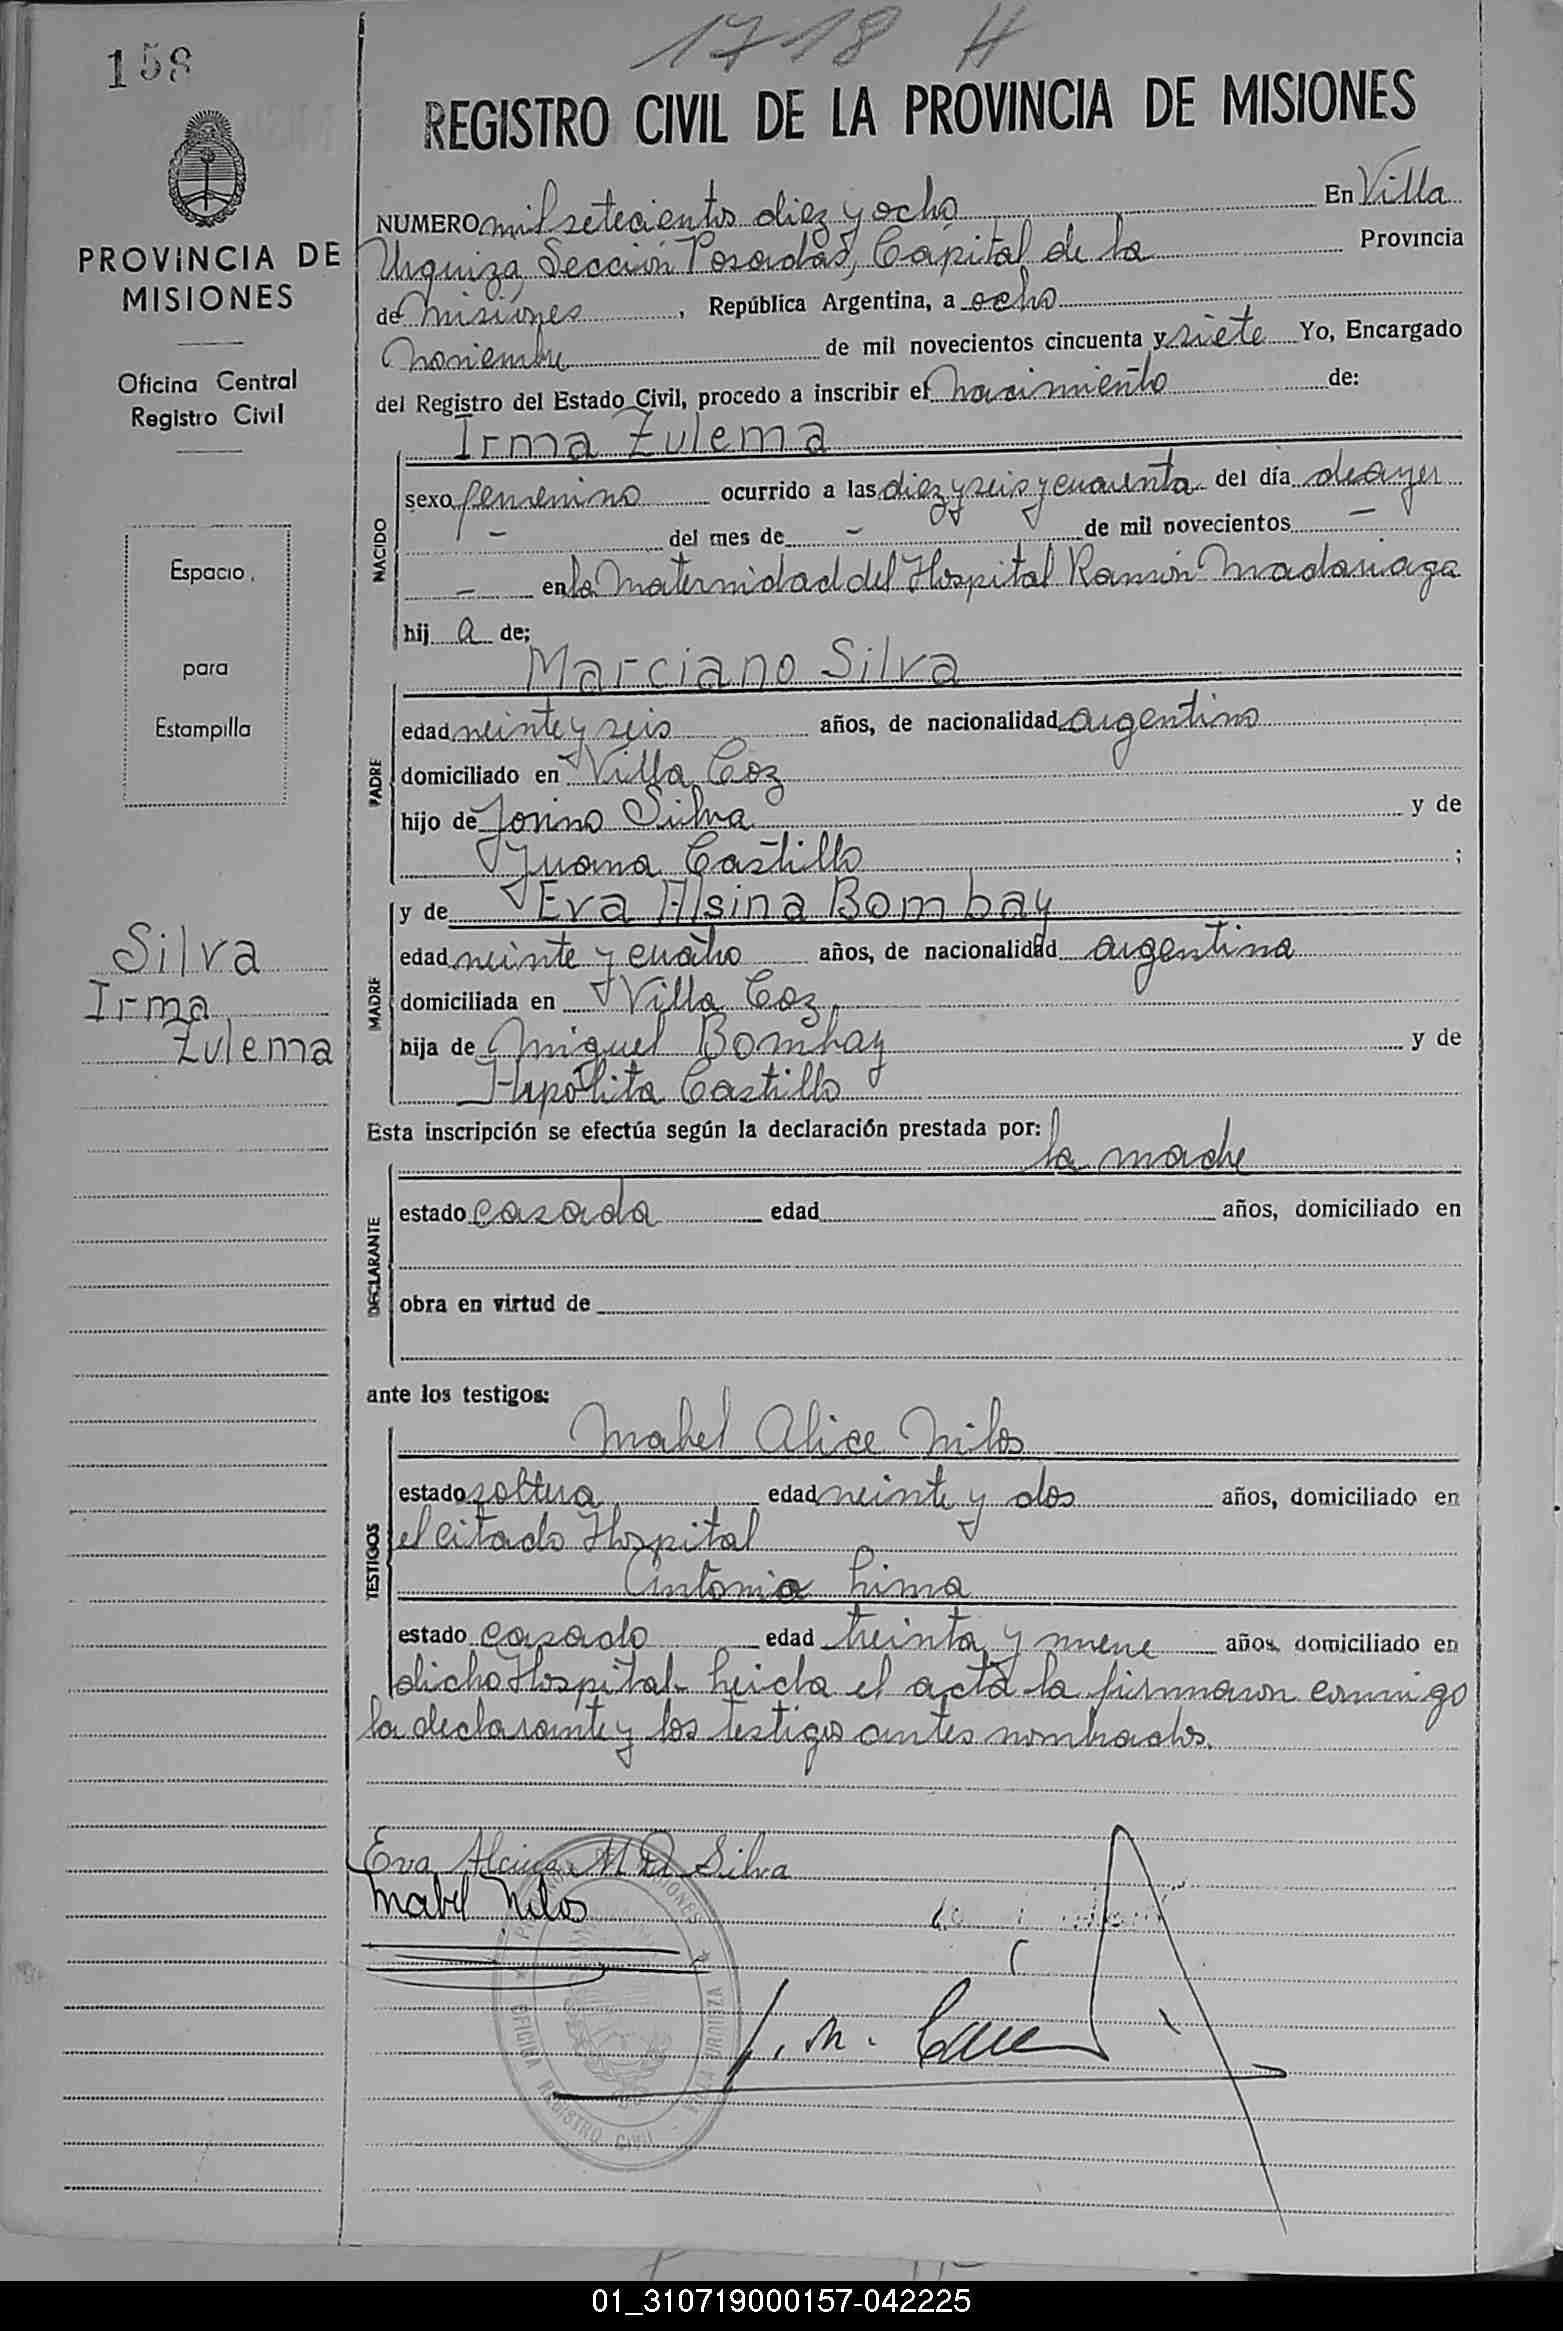 1718 H
158
REGISTRO CIVIL DE LA PROVINCIA DE MISIONES
PROVINCIA DE
MISIONES
Oficina Central
Registro Civil
Espacio
para
Estampilla
Silva
Irma
Zulema
NUMERO mil setecientos diez y ocho En Villa
Urquiza, Sección Posadas, Capital de la Provincia
de Misiones, República Argentina, a ocho
Noviembre de mil novecientos cincuenta y siete Yo, Encargado
del Registro del Estado Civil, procedo a inscribir el nacimiento de:
Irma Zulema
NACIDO
sexo femenino ocurrido a las diez y seis y cuarenta del día de ayer
- del mes de - de mil novecientos -
- en la Maternidad del Hospital Ramón Madariaga
hij a de;
Marciano Silva
PADRE
edad veinte y seis años, de nacionalidad argentino
domiciliado en Villa Coz
hijo de Silva y de
Juana Castillo ;
y de Eva Alsina Bombay
MADRE
edad veinte y cuatro años, de nacionalidad argentina
domiciliada en Villa Coz,
hija de Miguel Bombay y de
Hipólita Castillo
Esta inscripción se efectúa según la declaración prestada por:
la madre
DECLARANTE
estado casada edad años, domiciliado en
obra en virtud de
ante los testigos:
Mabel Alice Milos
TESTIGOS
estado soltera edad veinte y dos años, domiciliado en
el citado Hospital
Antonio Lima
estado casado edad treinta y nueve años, domiciliado en
dicho Hospital. Leida el acta la firmaron conmigo
la declarante y los testigos antes nombrados.
Eva Silva
Mabel Milos
OFICINA REGISTRO CIVIL VILLA URQUIZA
01_310719000157-042225